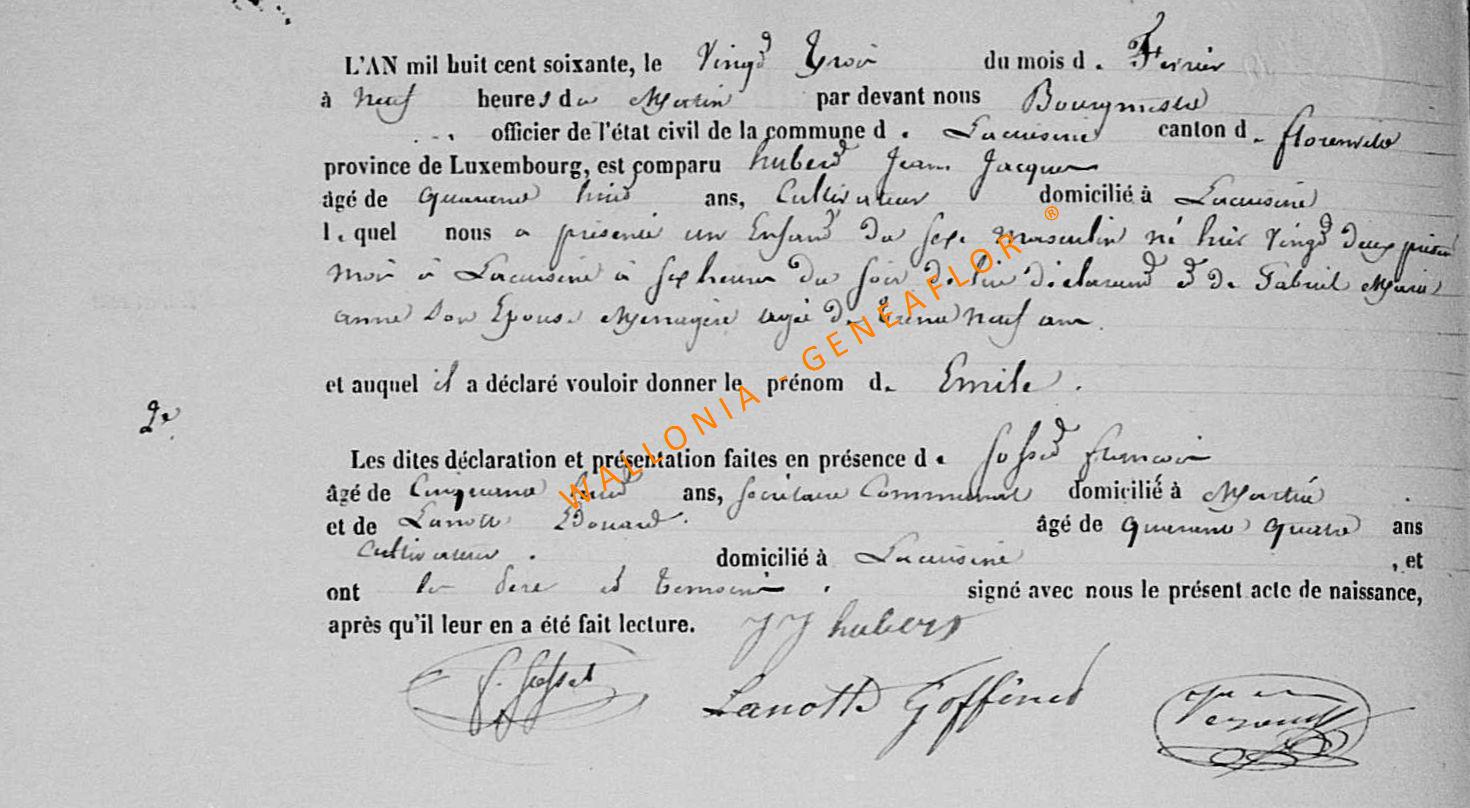 L'AN mil huit cent soixante, le Vingt Trois du mois d. Fevrier
à Neuf heures du Matin par devant nous Bourgmestre
officier de l'état civil de la commune d. Lacuisine canton d. florenville
province de Luxembourg, est comparu hubert Jean Jacques
âgé de quarante huit ans, Cultivateur domicilié à Lacuisine
l. quel nous a présenté un Enfant du sexe masculin né hier Vingt deux présent
mois à Lacuisine à six heures du soir de lui déclarant et de Marie
anne son Epouse Menagère agée de trente Neuf ans.
et auquel il a déclaré vouloir donner le prénom d. Emile.
2e
Les dites déclaration et présentation faites en présence d. francois
âgé de Cinquante ans, secrétaire Communal domicilié à Martué
et de Lanotte Edouard. âgé de quarante quatre ans
Cultivateur. domicilié à Lacuisine, et
ont le Pere et temoins signé avec nous le présent acte de naissance,
après qu'il leur en a été fait lecture. J J hubert
Lanotte Goffinet
WALLONIA - GENEAFLOR ®